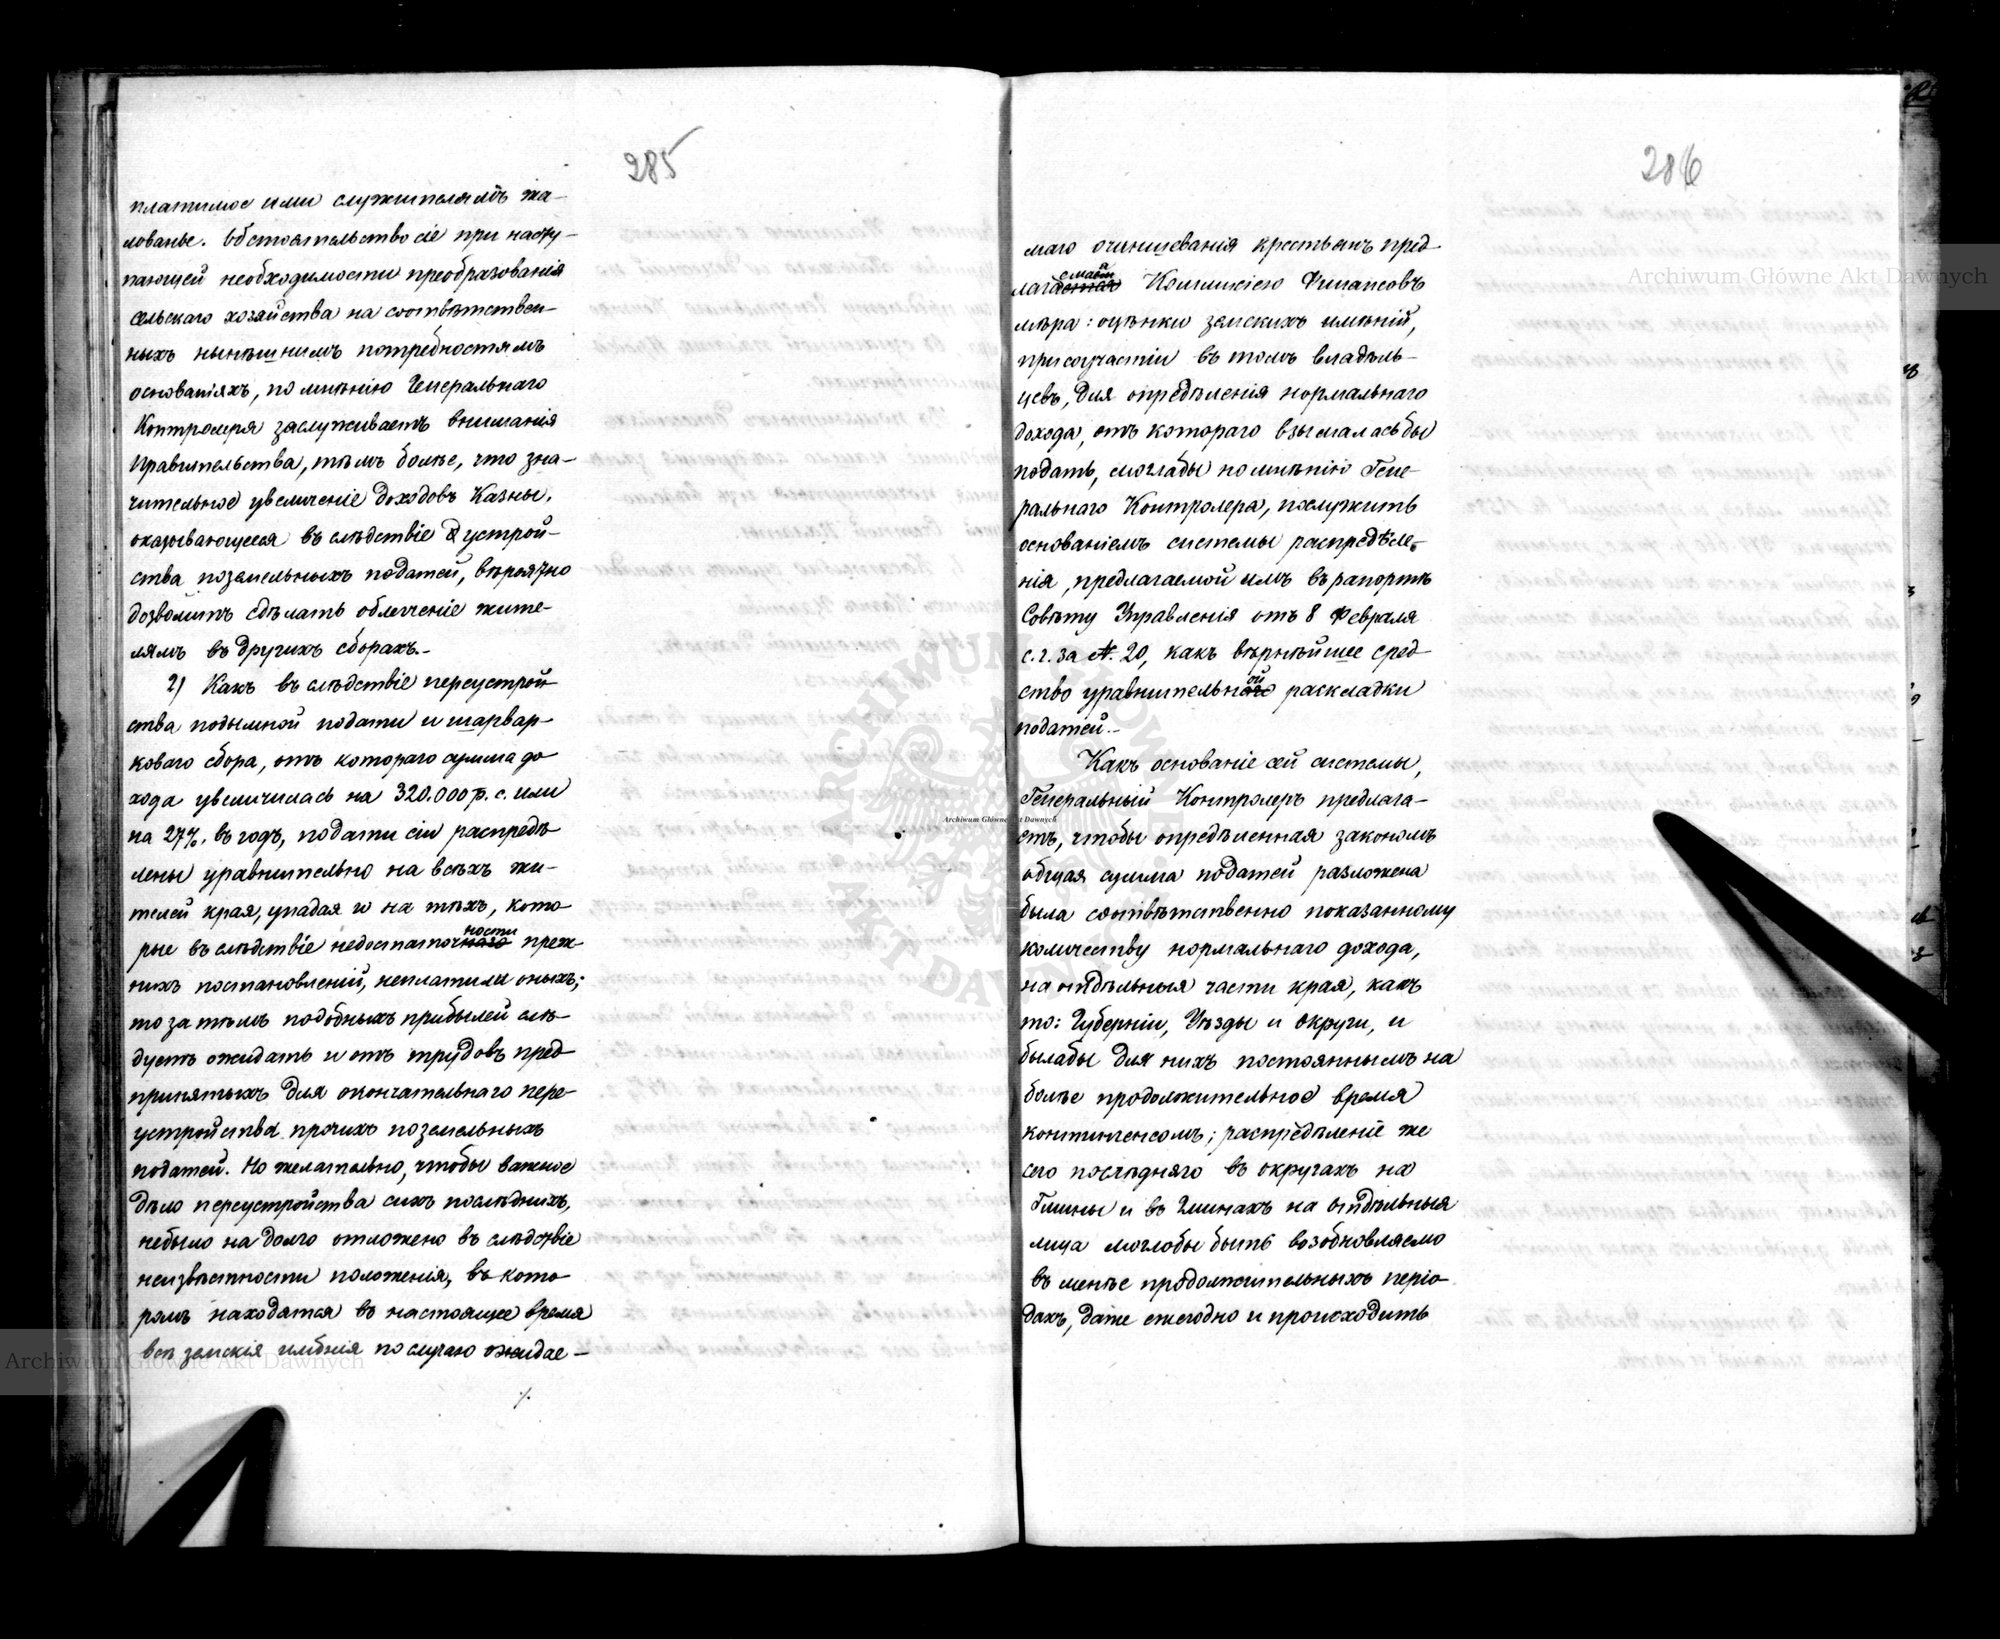 285
платимое ими служителямъ жа-
лованье. Обстоятельство сіе при насту-
пающей необходимости преобразованія
сельскаго хозяйства на соотвѣтствен-
ныхъ нынѣшнимъ потребностямъ
основаніяхъ, по мнѣнію Генеральнаго
Контролера заслуживаетъ вниманія
Правительства, тѣмъ болѣе, что зна-
чительное увеличеніе доходовъ Казны,
оказывающееся въ слѣдствіе устрой-
ства поземельныхъ податей, вѣроятно
дозволитъ сдѣлать облегченіе жите-
лямъ въ другихъ сборахъ.-
2) Какъ въ слѣдствіе переустрой
ства подымной подати и шарвар-
коваго сбора, отъ котораго сумма до
хода увеличилась на 320.000 р. с. или
на 27%. въ годъ, подати сіи распредѣ
лены уравнительно на всѣхъ жи-
телей края, упадая и на тѣхъ, кото
рые въ слѣдствіе недостаточности преж-
нихъ постановленій, неплатили оныхъ;
то за тѣмъ подобныхъ прибылей слѣ
дуетъ ожидать и отъ трудовъ пред
принятыхъ для окончательнаго пере-
устройства прочихъ поземельныхъ
податей. Но желательно, чтобы важное
дѣло переустройства сихъ послѣднихъ,
небыло на долго отложено въ слѣдствіе
неизвѣстности положенія, въ кото
ромъ находятся въ настоящее время
всѣ земскія имѣнія по случаю ожидае-
٪
286
маго очиншеванія крестьянъ пред
лагаемая Коммисіею Финансовъ
мѣра: оцѣнки земскихъ имѣній,
при соучастіи въ томъ владѣль-
цевъ, для опредѣленія нормальнаго
дохода, отъ котораго взымаласьбы
подать, моглабы по мнѣнію Гене-
ральнаго Контролера, послужить
основаніемъ системы распредѣле-
нія, предлагаемой имъ въ рапортѣ
Совѣту Управленія отъ 8 Февраля
с. г. за №. 20, какъ вѣрнѣйшее сред
ство уравнительной раскладки
податей.-
Какъ основаніе сей системы,
Генеральный Контролеръ предлага-
етъ, чтобы опредѣленная закономъ
общая сумма податей разложена
была соотвѣтственно показанному
количеству нормальнаго дохода,
на отдѣльныя части края, какъ
то: Губерніи, Уѣзды и округи, и
былабы для нихъ постояннымъ на
болѣе продолжительное время
контингенсомъ; распредѣленіе же
сего послѣдняго въ округахъ на
Гмины и въ Гминахъ на отдѣльныя
лица моглобы быть возобновляемо
въ менѣе продолжительныхъ періо
дахъ, даже ежегодно и происходить
Archiwum Główne Akt Dawnych
Archiwum Główne Akt Dawnych
Archiwum Główne Akt Dawnych
ARCHIWUM GŁÓWNE AKT DAWNYCH